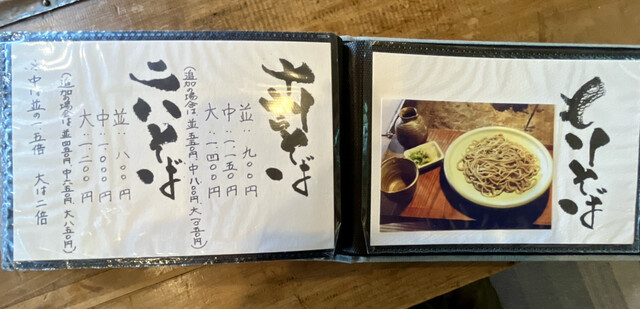 もりそば
十割そば
並：九〇〇円
中：一一五〇円
大：一四〇〇円
(追加の場合は 並 五五〇円 中 八〇〇円、大 一〇五〇円)
二八そば
並：八〇〇円
中：一〇〇〇円
大：一二〇〇円
(追加の場合は 並 四五〇円 中 六五〇円 大 八五〇円)
※中は並の一.五倍 大は二倍